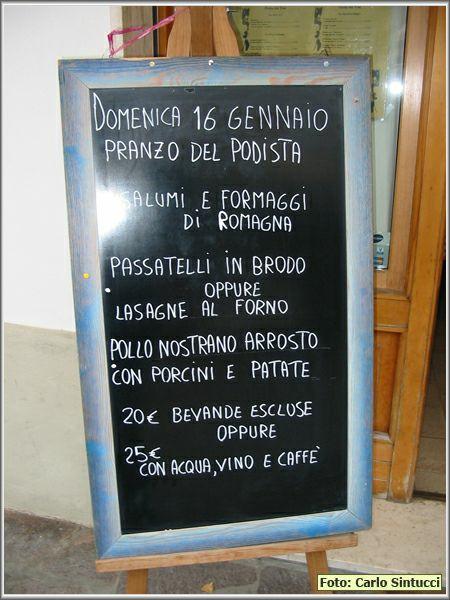 DOMENICA 16 GENNAIO
PRANZO DEL PODISTA
SALUMI E FORMAGGI
DI ROMAGNA
PASSATELLI IN BRODO
OPPURE
LASAGNE AL FORNO
POLLO NOSTRANO ARROSTO
CON PORCINI E PATATE
20€ BEVANDE ESCLUSE
OPPURE
25€
CON ACQUA, VINO E CAFFÈ
Foto: Carlo Sintucci